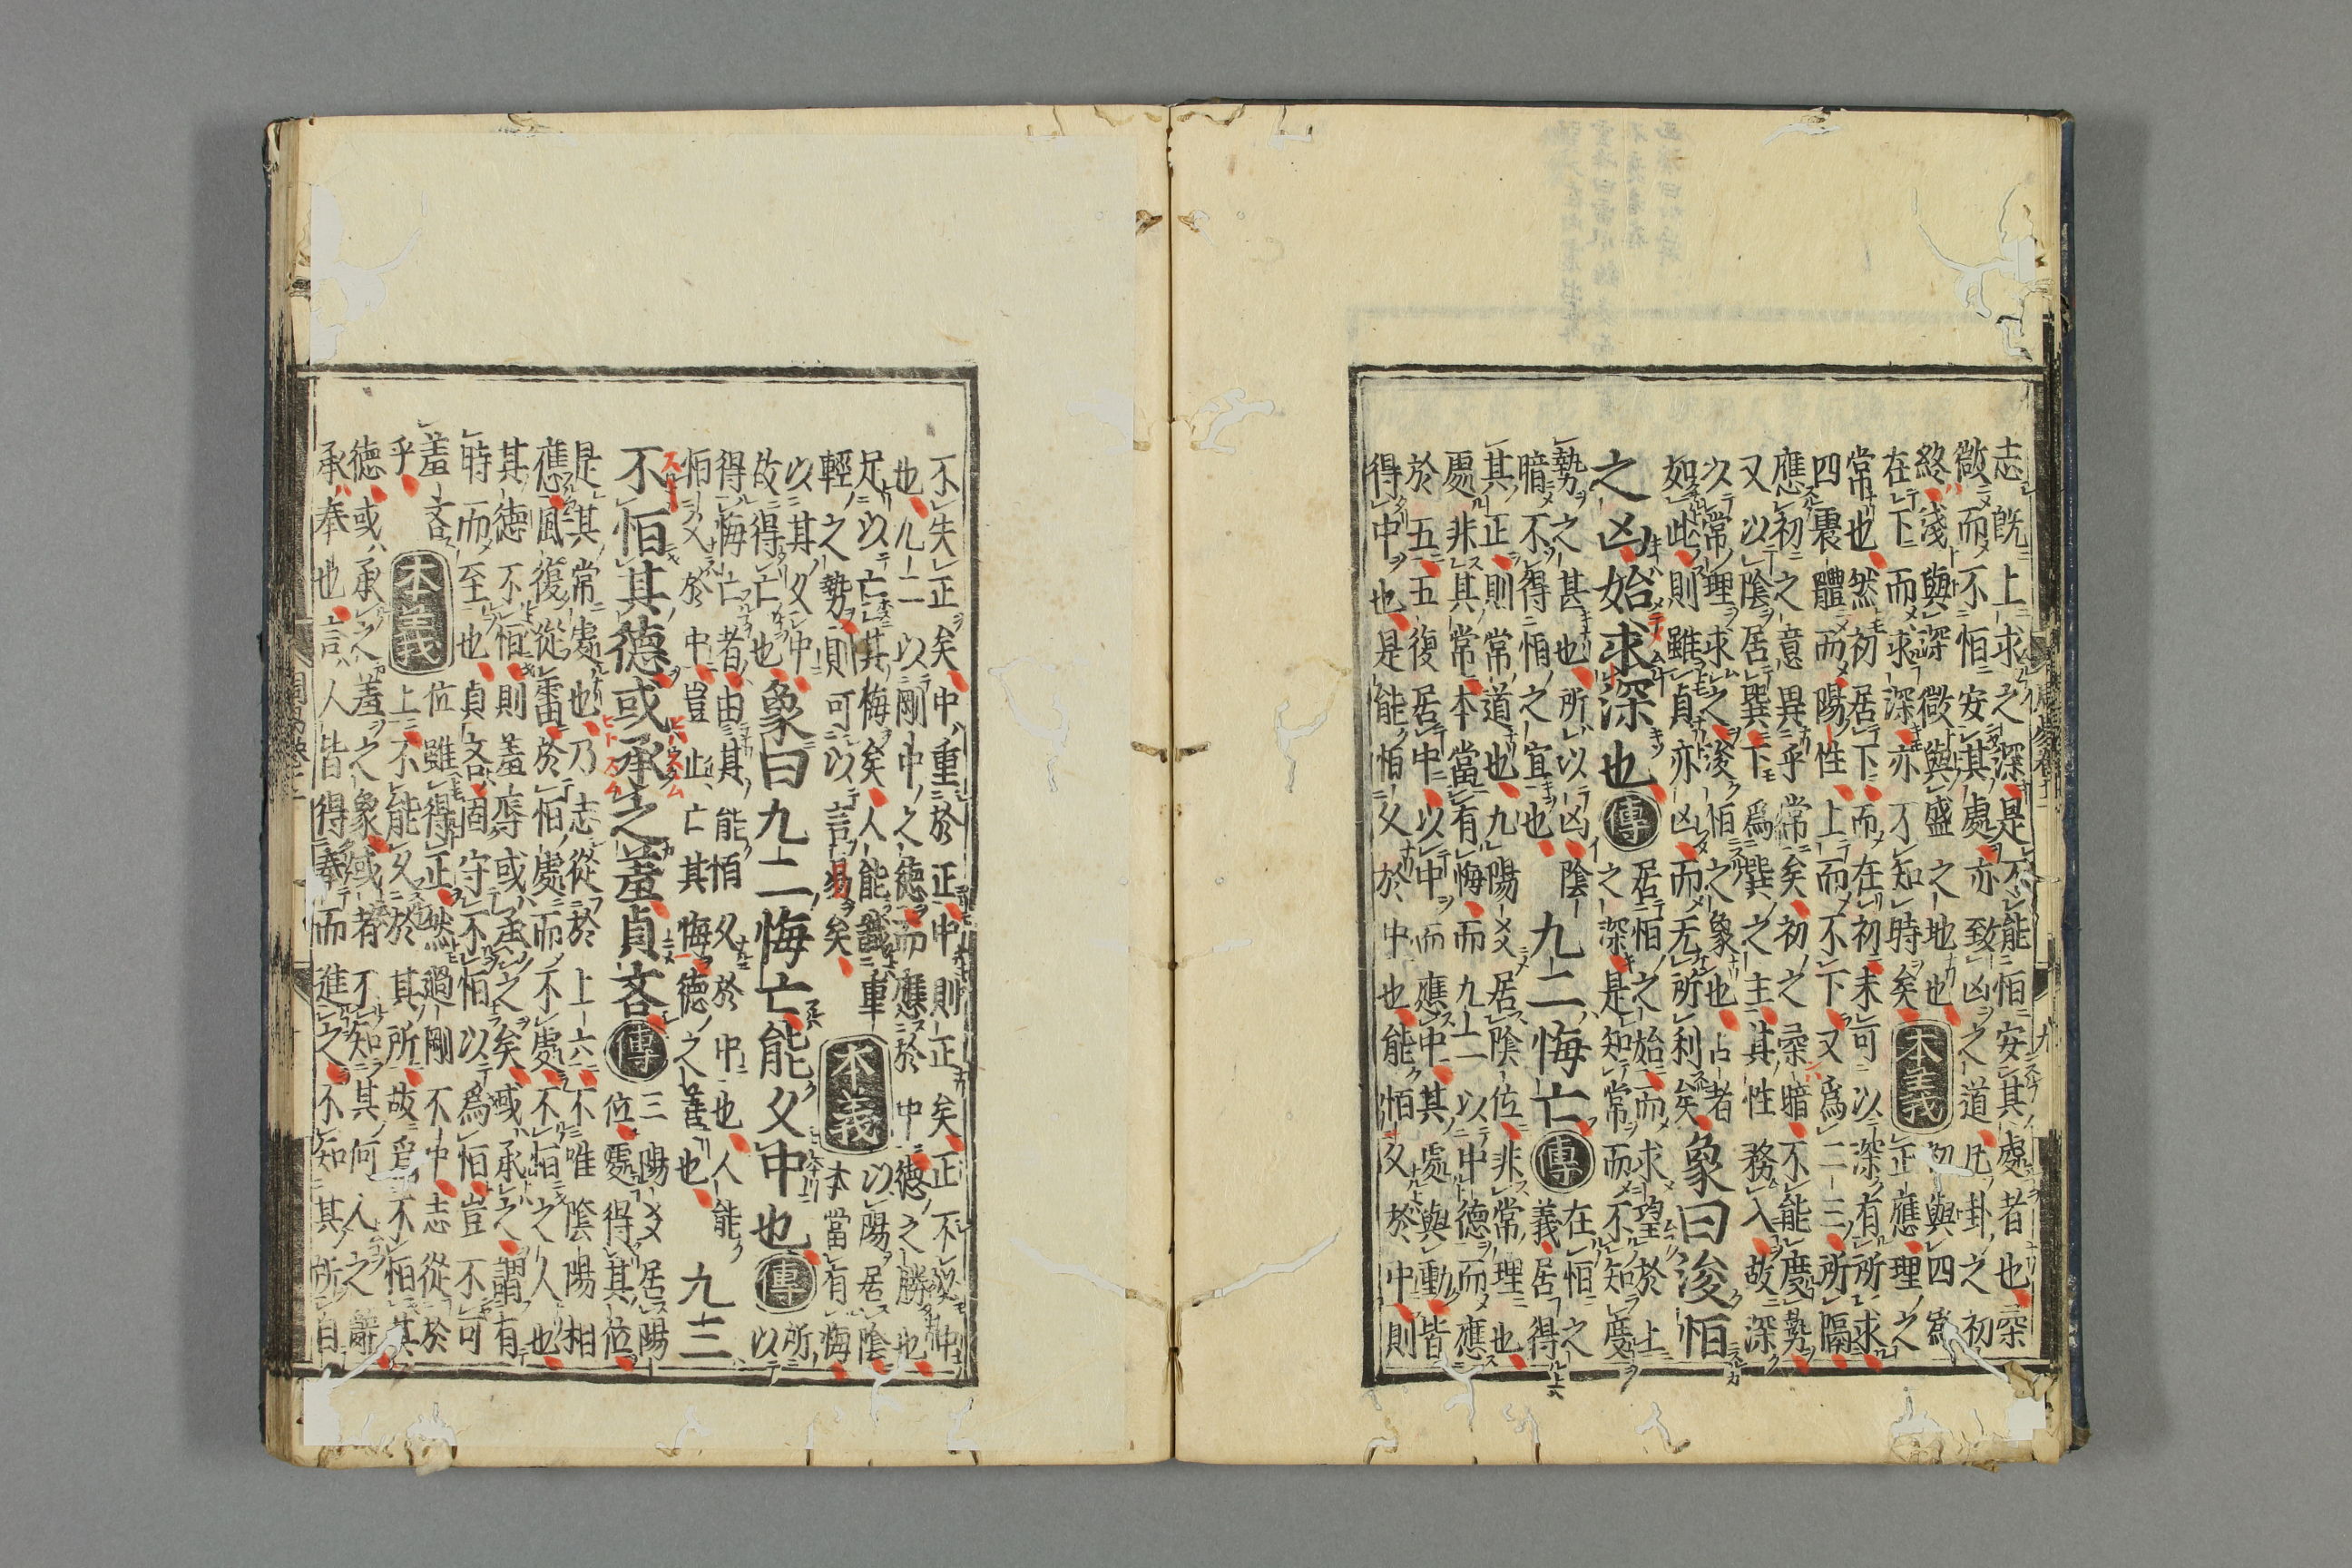 志既上求之深是不能恒安其處者也柔
微而不恒安其處亦致凶之道凡卦之初
終淺與深微與盛之地也
在下而求深亦不知時矣
本義
初與四爲
正應理之
常也然初居下而在初未可以深有所求
四震體而陽性上而不下又爲二三所隔
應初之意異乎常矣初之柔暗不能度勢
又以陰居巽下爲巽之主其性務入故深
以常理求之浚恒之象也占者
如此則雖貞亦凶而无所利矣
象曰浚恒
之凶始求深也
傳
居恒之始而求望於上
之深是知常而不知度
勢之甚也所以凶陰
暗不得恒之宜也
九二悔亡
傳
在恒之
義居得
其正則常道也九陽爻居陰位非常理也
處非其常本當有悔而九二以中德而應
於五五復居中以中而應中其處與動皆
得中也是能恒久於中也能恒久於中則
不失正矣中重於正中則正矣正不必中
也九二以剛中之德而應於中德之勝也
足以亡其悔矣人能識重
輕之勢則可以言易矣
本義
以陽居陰
本當有悔
以其久中
故得亡也
象曰九二悔亡能久中也
傳
所
以
得悔亡者由其能恒久於中也人能
恒久於中豈止亡其悔德之善也
九三
不恒其德或承之羞貞吝
傳
三陽爻居陽
位處得其位
是其常處也乃志從於上六不唯陰陽相
應風復從雷於恒處而不處不恒之人也
其德不恒則羞辱或承之矣或承之謂有
時而至也貞吝固守不恒以爲恒豈不可
羞吝
乎
本義
位雖得正然過剛不中志從於
上不能久於其所故爲不恒其
德或承之羞之象或者不知其何人之辭
承奉也言人皆得奉而進之不知其所自